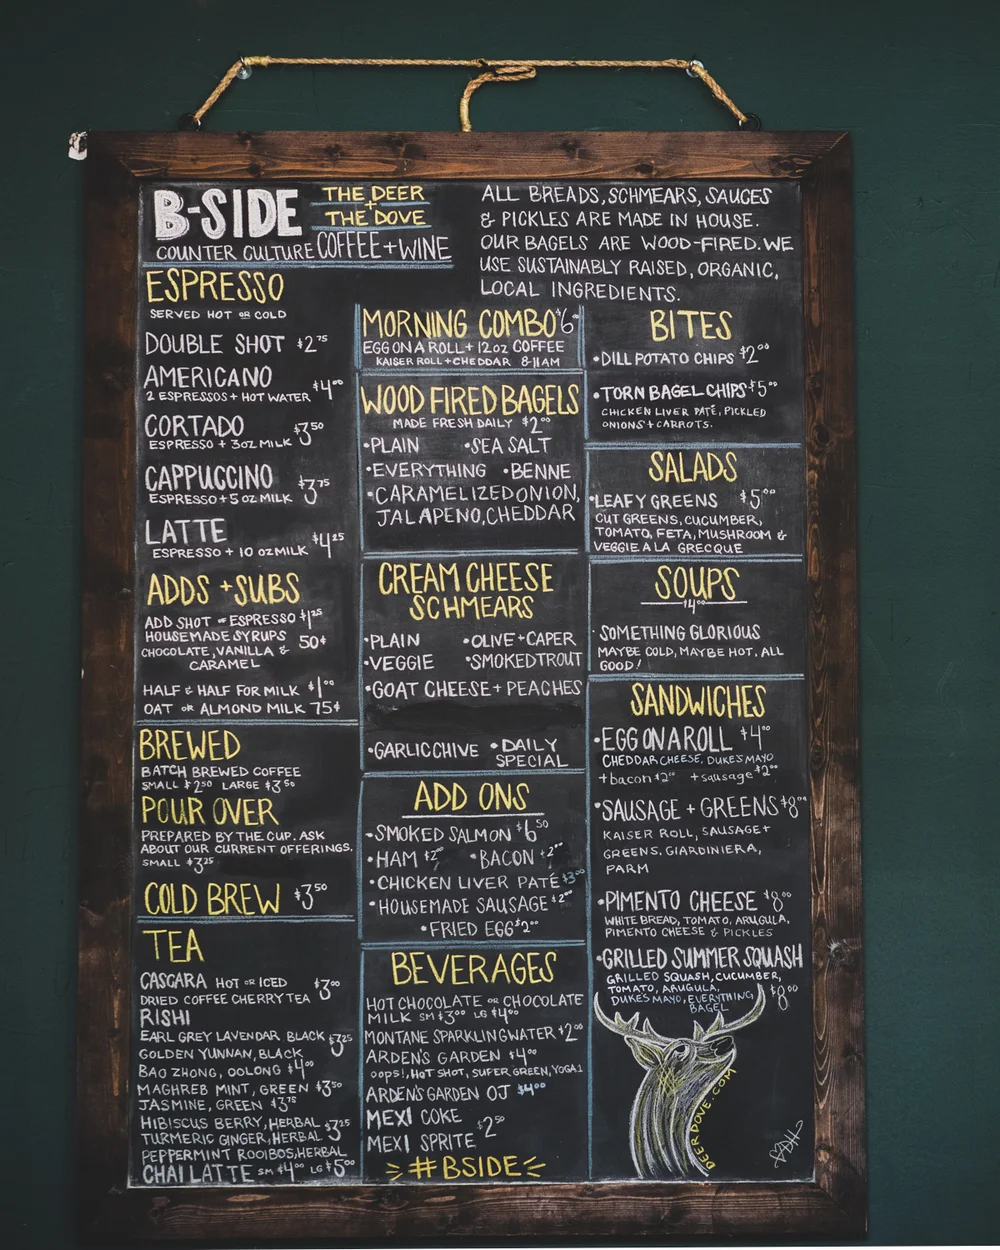 B-SIDE
THE DEER
+
THE DOVE
COUNTER CULTURE COFFEE + WINE
ALL BREADS, SCHMEARS, SAUCES
& PICKLES ARE MADE IN HOUSE.
OUR BAGELS ARE WOOD-FIRED. WE
USE SUSTAINABLY RAISED, ORGANIC,
LOCAL INGREDIENTS.
ESPRESSO
SERVED HOT OR COLD
DOUBLE SHOT $2.75
AMERICANO
2 ESPRESSOS + HOT WATER $4.00
CORTADO
ESPRESSO + 3OZ MILK $3.50
CAPPUCCINO
ESPRESSO + 5 OZ MILK $3.75
LATTE
ESPRESSO + 10 OZ MILK $4.25
ADDS + SUBS
ADD SHOT OF ESPRESSO $1.25
HOUSEMADE SYRUPS 50¢
CHOCOLATE, VANILLA &
CARAMEL
HALF & HALF FOR MILK $1.00
OAT OR ALMOND MILK 75¢
BREWED
BATCH BREWED COFFEE
SMALL $2.50 LARGE $3.50
POUR OVER
PREPARED BY THE CUP. ASK
ABOUT OUR CURRENT OFFERINGS.
SMALL $3.25
COLD BREW $3.50
TEA
CASCARA HOT OR ICED $3.00
DRIED COFFEE CHERRY TEA
RISHI
EARL GREY LAVENDAR, BLACK $3.25
GOLDEN YUNNAN, BLACK
BAO ZHONG, OOLONG $4.00
MAGHREB MINT, GREEN $3.50
JASMINE, GREEN $3.75
HIBISCUS BERRY, HERBAL $3.25
TURMERIC GINGER, HERBAL
PEPPERMINT ROOIBOS, HERBAL
CHAI LATTE SM $4.00 LG $5.00
MORNING COMBO $6.00
EGG ON A ROLL + 12oz COFFEE
KAISER ROLL + CHEDDAR 8-11AM
WOOD FIRED BAGELS
MADE FRESH DAILY $2.00
•PLAIN •SEA SALT
•EVERYTHING •BENNE
•CARAMELIZED ONION,
JALAPENO, CHEDDAR
CREAM CHEESE
SCHMEARS
•PLAIN •OLIVE + CAPER
•VEGGIE •SMOKED TROUT
•GOAT CHEESE + PEACHES
•GARLIC CHIVE •DAILY
SPECIAL
ADD ONS
•SMOKED SALMON $6.50
•HAM $2.00 •BACON $2.00
•CHICKEN LIVER PATÉ $3.00
•HOUSEMADE SAUSAGE $2.00
•FRIED EGG $2.00
BEVERAGES
HOT CHOCOLATE OR CHOCOLATE
MILK SM $3.00 LG $4.00
MONTANE SPARKLING WATER $2.00
ARDEN'S GARDEN $4.00
OOPS!, HOT SHOT, SUPER GREEN, YOGA 1
ARDEN'S GARDEN OJ $4.00
MEXI COKE
$2.50
MEXI SPRITE
#BSIDE
BITES
•DILL POTATO CHIPS $2.00
•TORN BAGEL CHIPS $5.00
CHICKEN LIVER PATÉ, PICKLED
ONIONS + CARROTS.
SALADS
•LEAFY GREENS $5.00
CUT GREENS, CUCUMBER,
TOMATO, FETA, MUSHROOM &
VEGGIE A LA GRECQUE
SOUPS
$4.00
• SOMETHING GLORIOUS
MAYBE COLD, MAYBE HOT. ALL
GOOD!
SANDWICHES
•EGG ON A ROLL $4.00
CHEDDAR CHEESE, DUKE'S MAYO
+bacon $2.00 +sausage $2.00
•SAUSAGE + GREENS $8.00
KAISER ROLL, SAUSAGE +
GREENS, GIARDINIERA,
PARM
•PIMENTO CHEESE $8.00
WHITE BREAD, TOMATO, ARUGULA,
PIMENTO CHEESE & PICKLES
•GRILLED SUMMER SQUASH
GRILLED SQUASH, CUCUMBER,
TOMATO, ARUGULA,
DUKE'S MAYO, EVERYTHING $8.00
BAGEL
DEERDOVE.COM